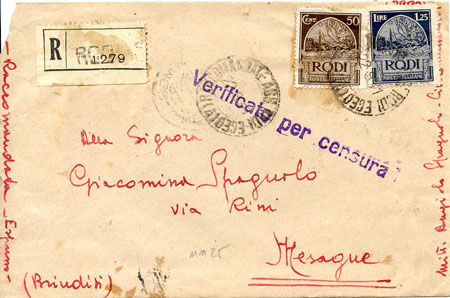 R
1279
CENT. 50
RODI
POSTE ITALIANE
LIRE 1,25
RODI
POSTE ITALIANE
Verificato per censura
Alla Signora
Giacomina Spagnolo
Via Rini
Mesague
(Brindisi)
mm 25
- Raccomandata - Espresso -
Mitt. Angelo Spagnolo